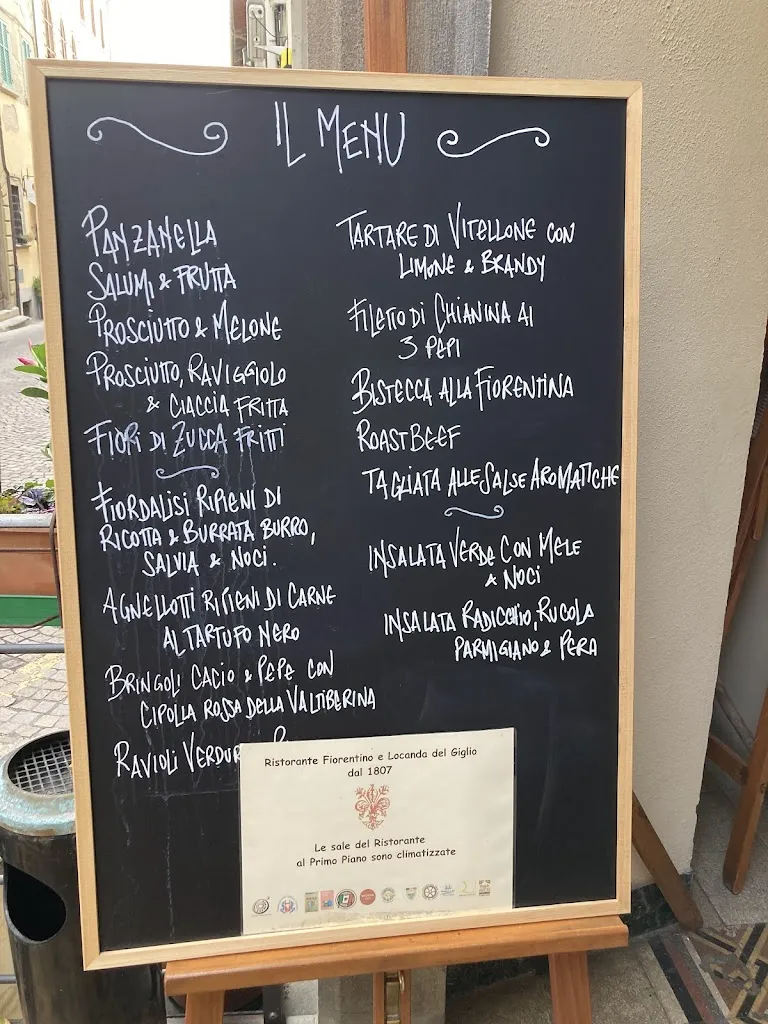 IL MENU
PANZANELLA
SALUMI & FRUTTA
PROSCIUTTO & MELONE
PROSCIUTTO, RAVIGGIOLO
& CIACCIA FRITTA
FIORI DI ZUCCA FRITTI
FIORDALISI RIPIENI DI
RICOTTA & BURRATA BURRO,
SALVIA & NOCI.
AGNELLOTTI RIPIENI DI CARNE
AL TARTUFO NERO
BRINGOLI CACIO & PEPE CON
CIPOLLA ROSSA DELLA VALTIBERINA
RAVIOLI
TARTARE DI VITELLONE CON
LIMONE & BRANDY
FILETTO DI CHIANINA AI
3 PEPI
BISTECCA ALLA FIORENTINA
ROAST BEEF
TAGLIATA ALLE SALSE AROMATICHE
INSALATA VERDE CON MELE
& NOCI
INSALATA RADICCHIO, RUCOLA
PARMIGIANO & PERA
Ristorante Fiorentino e Locanda del Giglio
dal 1807
Le sale del Ristorante
al Primo Piano sono climatizzate